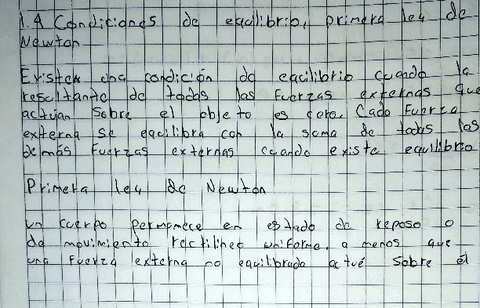 1.4 Condiciones de equilibrio, primera ley de
Newton
Existen una condición de equilibrio cuando la
resultante de todas las fuerzas externas que
actúan sobre el objeto es cero. Cada fuerza
externa se equilibra con la soma de todas las
demás fuerzas externas cuando existe equilibrio
Primera ley de Newton
un cuerpo permanece en estado de reposo o
de movimiento rectilíneo uniforme, a menos que
una fuerza externa no equilibrada actué sobre él